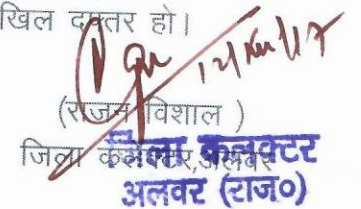 खिल दफ्तर हो।
(राजन विशाल )
जिला कलेक्टर,अलवर
जिला कलक्टर
अलवर (राज०)